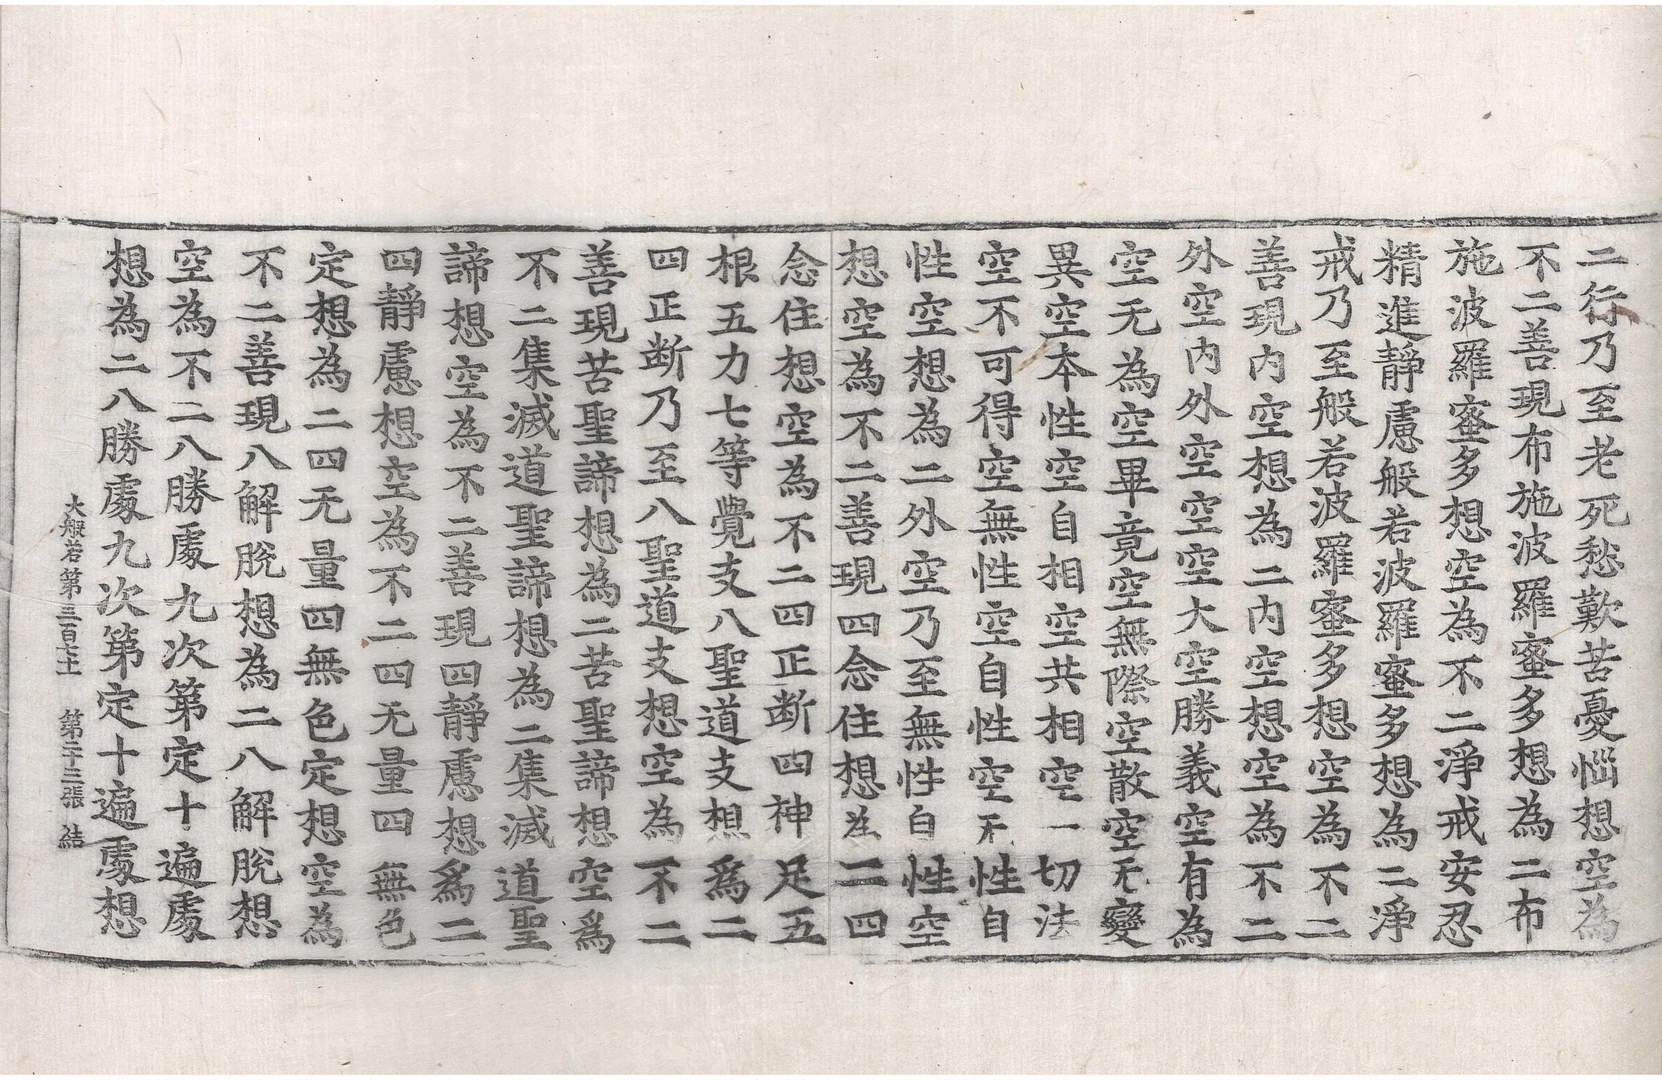 二行乃至老死愁歎苦憂惱想空為
不二善現布施波羅蜜多想為二布
施波羅蜜多想空為不二淨戒安忍
精進靜慮般若波羅蜜多想為二淨
戒乃至般若波羅蜜多想空為不二
善現內空想為二內空想空為不二
外空內外空空空大空勝義空有為
空无為空畢竟空無際空散空无變
異空本性空自相空共相空一切法
空不可得空無性空自性空无性自
性空想為二外空乃至無性自性空
想空為不二善現四念住想為二四
念住想空為不二四正断四神足五
根五力七等覺支八聖道支想為二
四正断乃至八聖道支想空為不二
善現苦聖諦想為二苦聖諦想空為
不二集滅道聖諦想為二集滅道聖
諦想空為不二善現四靜慮想為二
四靜慮想空為不二四无量四無色
定想為二四无量四無色定想空為
不二善現八解脫想為二八解脫想
空為不二八勝處九次第定十遍處
想為二八勝處九次第定十遍處想
大般若第三百七十 第二十三張 結